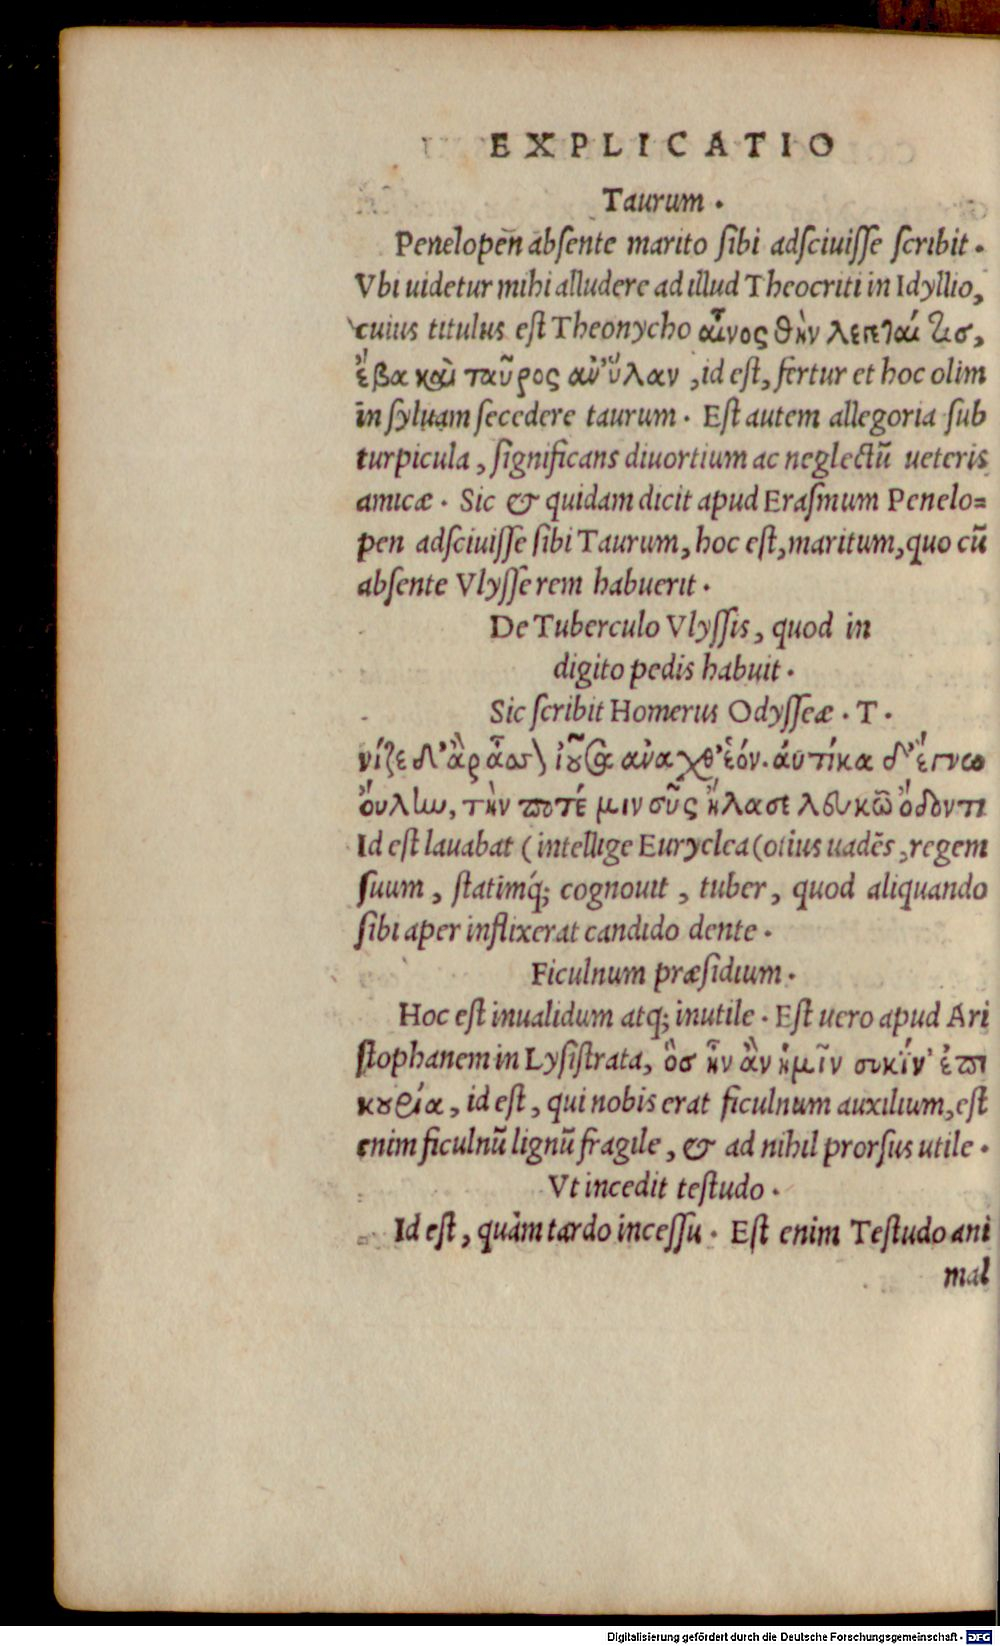 EXPLICATIO
Taurum.
Penelopen absente marito sibi adsciuisse scribit.
Vbi uidetur mihi alludere ad illud Theocriti in Idyllio,
cuius titulus est Theonycho αἶνος θὴν λεπταί τισ,
ἔβα καὶ ταῦρος αὐ ὕλαν, id est, fertur et hoc olim
in syluam secedere taurum. Est autem allegoria sub
turpicula, significans diuortium ac neglectũ ueteris
amicæ. Sic & quidam dicit apud Erasmum Penelo=
pen adsciuisse sibi Taurum, hoc est, maritum, quo cũ
absente Vlysse rem habuerit.
De Tuberculo Vlyssis, quod in
digito pedis habuit.
Sic scribit Homerus Odysseæ. T.
νίζε δ' ἂρ ἆσ ἰοῦσα ἀναχθ' ἑόν. ἀυτίκα δ' ἔγνω
ὄυλην, τὴν ποτέ μιν σῦς ἤλασε λευκῶ ὄδοντι
Id est lauabat (intellige Euryclea(ocius uadẽs, regem
suum, statimq́; cognouit, tuber, quod aliquando
sibi aper inflixerat candido dente.
Ficulnum præsidium.
Hoc est inualidum atq; inutile. Est uero apud Ari
stophanem in Lysistrata, ὃσ ἦν ἂν ἡμῖν συκίν' ἐπι
κουρία, id est, qui nobis erat ficulnum auxilium, est
enim ficulnũ lignũ fragile, & ad nihil prorsus utile.
Vt incedit testudo.
Id est, quàm tardo incessu. Est enim Testudo ani
mal
Digitalisierung gefördert durch die Deutsche Forschungsgemeinschaft - DFG